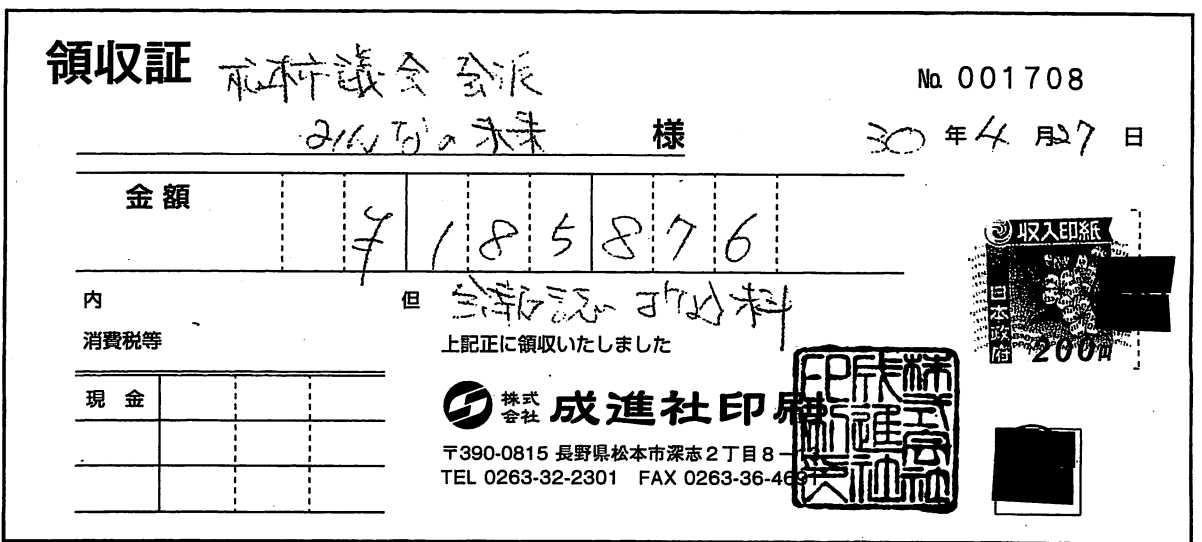 領収証
松本市議会 会派
みんなの未来 様
No. 001708
30年4月27日
金額 ¥185876
内
消費税等
現金
但 会報 印刷料
上記正に領収いたしました
株式会社 成進社印刷
〒390-0815 長野県松本市深志2丁目8-
TEL 0263-32-2301 FAX 0263-36-4691
収入印紙
日本政府
200円
株式会社成進社印刷